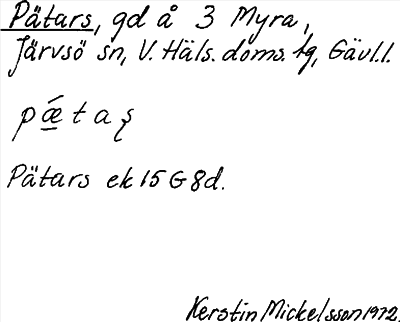 Pätars, gd å 3 Myra,
Järvsö sn, V. Häls. doms. tg, Gävl.l.
pǽ̠taʂ
Pätars ek 15 G 8d.
Kerstin Mickelsson 1972.